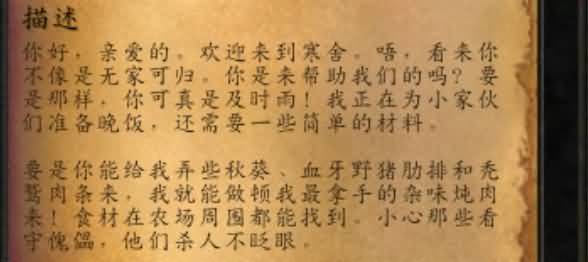 描述
你好，亲爱的。欢迎来到寒舍。唔，看来你
不像是无家可归。你是来帮助我们的吗？要
是那样，你可真是及时雨！我正在为小家伙
们准备晚饭，还需要一些简单的材料。
要是你能给我弄些秋葵、血牙野猪肋排和秃
鹫肉条来，我就能做顿我最拿手的杂味炖肉
来！食材在农场周围都能找到。小心那些看
守傀儡，他们杀人不眨眼。